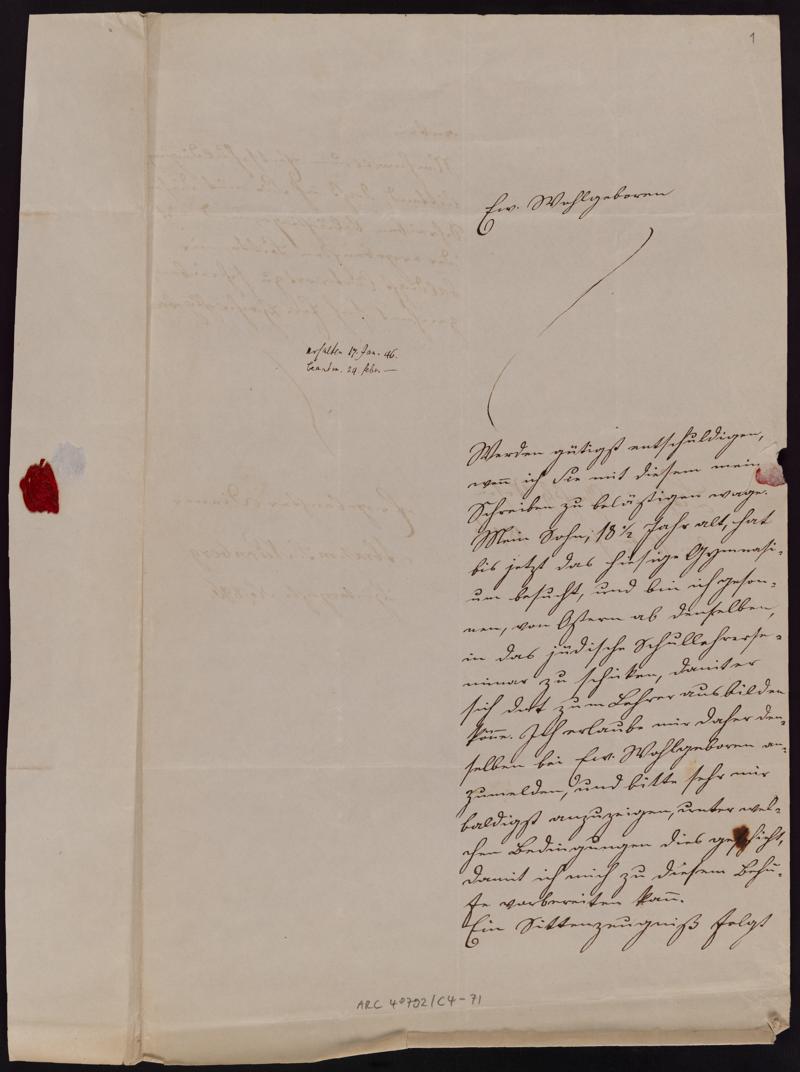 1
Ew. Wohlgeboren
erhalten 17. Jan. 46.
beantw. 24. Febr. —
Werden gütigst entschuldigen,
wen̄ ich Sie mit diesem mein
Schreiben zu belästigen wage.
Mein Sohn, 18 ½ Jahr alt, hat
bis jetzt das hiesige Gymnasi-
um besucht, und bin ich geson-
nen, von Ostern ab denselben,
in das jüdische Schullehrerse-
minar zu schicken, damit er
sich dort zum Lehrer ausbilden
kön̄e. Ich erlaube mir daher den-
selben bei Ew. Wohlgeboren an-
zumelden, und bitte sehr mir
baldigst anzuzeigen, unter wel-
chen Bedingungen dies geschieht,
damit ich mich zu diesem Behu-
fe vorbereiten kan̄.
Ein Sittenzeugniß folgt
ARC 4°792/C4-71